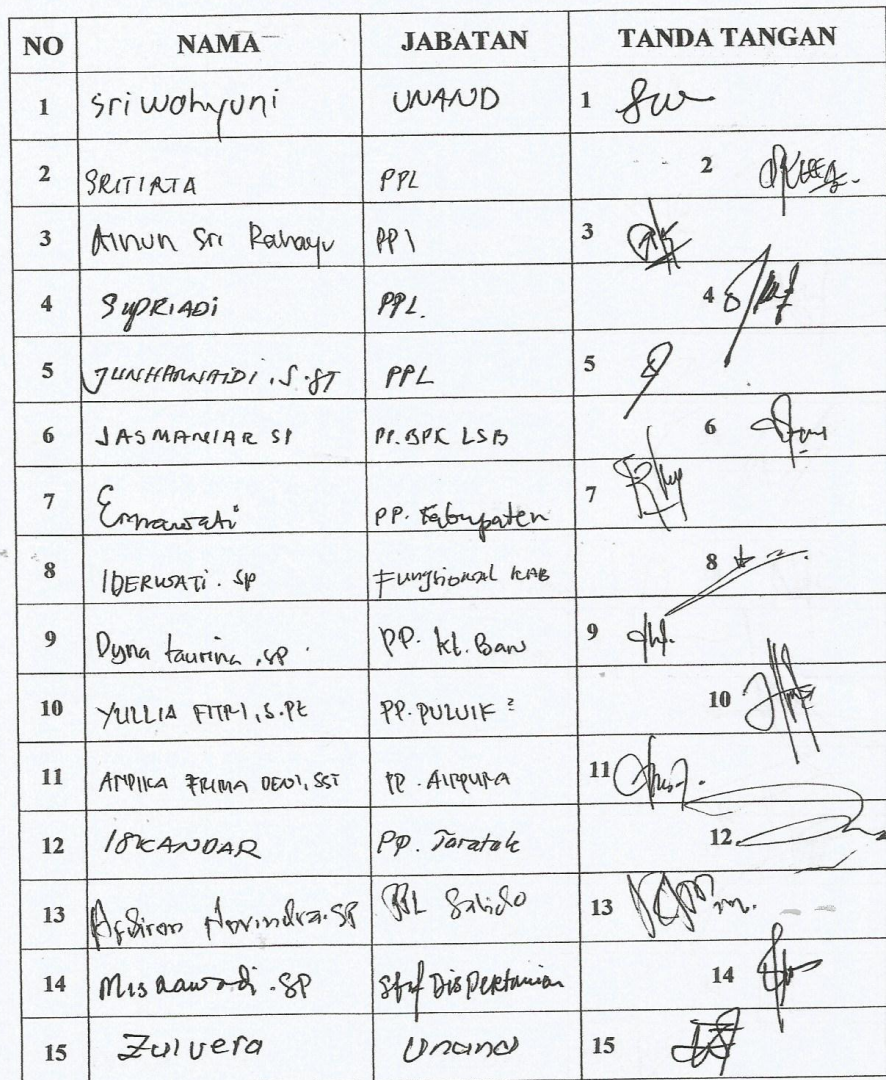 NO NAMA JABATAN TANDA TANGAN
1 Sri wahyuni UNAND 1
2 SRITIATA PPL 2
3 Ainun Sri Rahayu PPl 3
4 SUPRIADI PPL. 4
5 JUNHARNAIDI, S.ST PPL 5
6 JASMANIAR SP PP. BPK LSB 6
7 Ernawati PP. Kabupaten 7
8 IDERWATI. SP Fungsional KAB 8
9 Dyna taurina, SP. PP. Kt. Baru 9
10 YULLIA FITRI, S.Pt PP. PULUIK ² 10
11 PRIMA DEWI, SST PP. AIRPURA 11
12 ISKANDAR PP. Taratak 12
13 SP PPL Salido 13
14 Misnawadi. SP Staf Dis Pertanian 14
15 Zulvera Unand 15